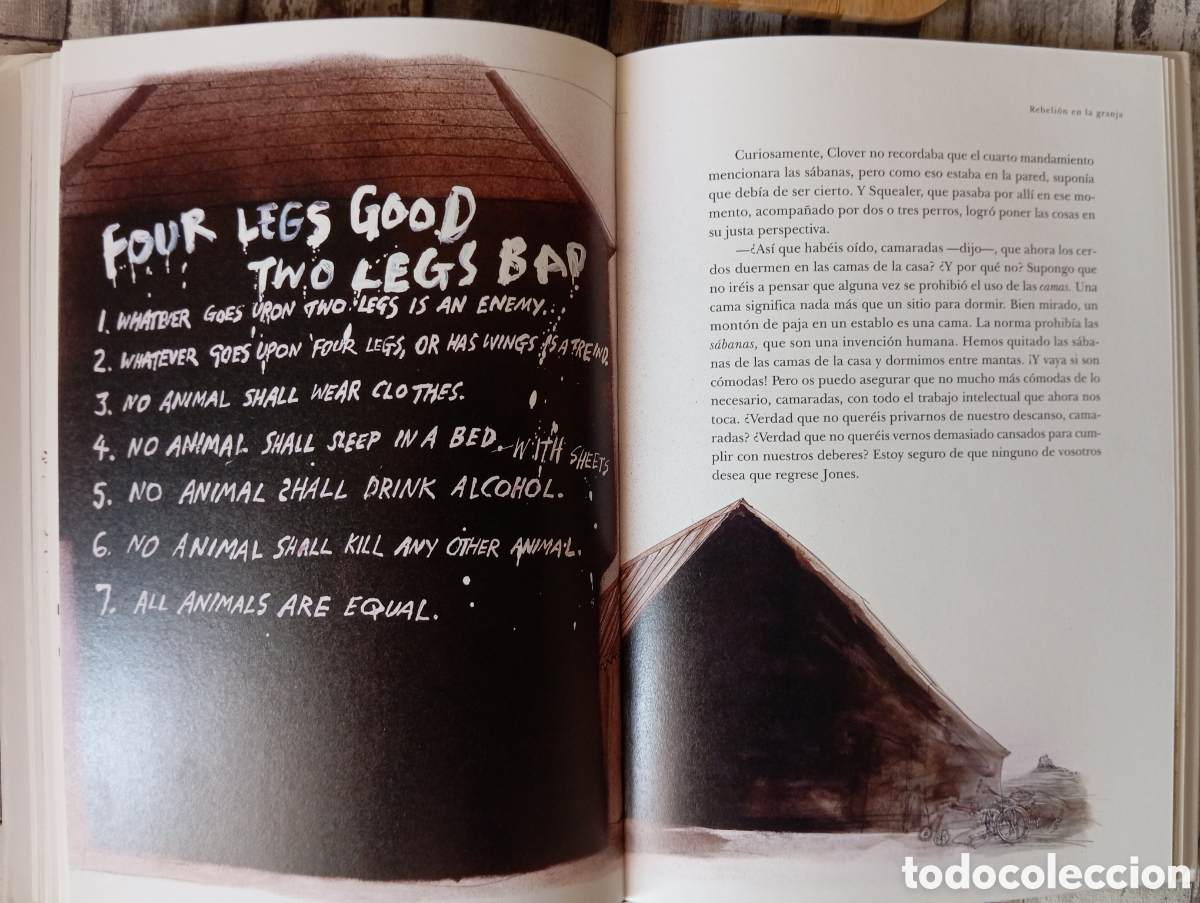 FOUR LEGS GOOD
TWO LEGS BAD
1. WHATEVER GOES UPON TWO LEGS IS AN ENEMY.
2. WHATEVER GOES UPON FOUR LEGS, OR HAS WINGS IS A FREIND.
3. NO ANIMAL SHALL WEAR CLOTHES.
4. NO ANIMAL SHALL SLEEP IN A BED. WITH SHEETS
5. NO ANIMAL SHALL DRINK ALCOHOL.
6. NO ANIMAL SHALL KILL ANY OTHER ANIMAL.
7. ALL ANIMALS ARE EQUAL.
Rebelión en la granja
Curiosamente, Clover no recordaba que el cuarto mandamiento
mencionara las sábanas, pero como eso estaba en la pared, suponía
que debía de ser cierto. Y Squealer, que pasaba por allí en ese mo-
mento, acompañado por dos o tres perros, logró poner las cosas en
su justa perspectiva.
—¿Así que habéis oído, camaradas —dijo—, que ahora los cer-
dos duermen en las camas de la casa? ¿Y por qué no? Supongo que
no iréis a pensar que alguna vez se prohibió el uso de las camas. Una
cama significa nada más que un sitio para dormir. Bien mirado, un
montón de paja en un establo es una cama. La norma prohibía las
sábanas, que son una invención humana. Hemos quitado las sába-
nas de las camas de la casa y dormimos entre mantas. ¡Y vaya si son
cómodas! Pero os puedo asegurar que no mucho más cómodas de lo
necesario, camaradas, con todo el trabajo intelectual que ahora nos
toca. ¿Verdad que no queréis privarnos de nuestro descanso, cama-
radas? ¿Verdad que no queréis vernos demasiado cansados para cum-
plir con nuestros deberes? Estoy seguro de que ninguno de vosotros
desea que regrese Jones.
todocoleccion